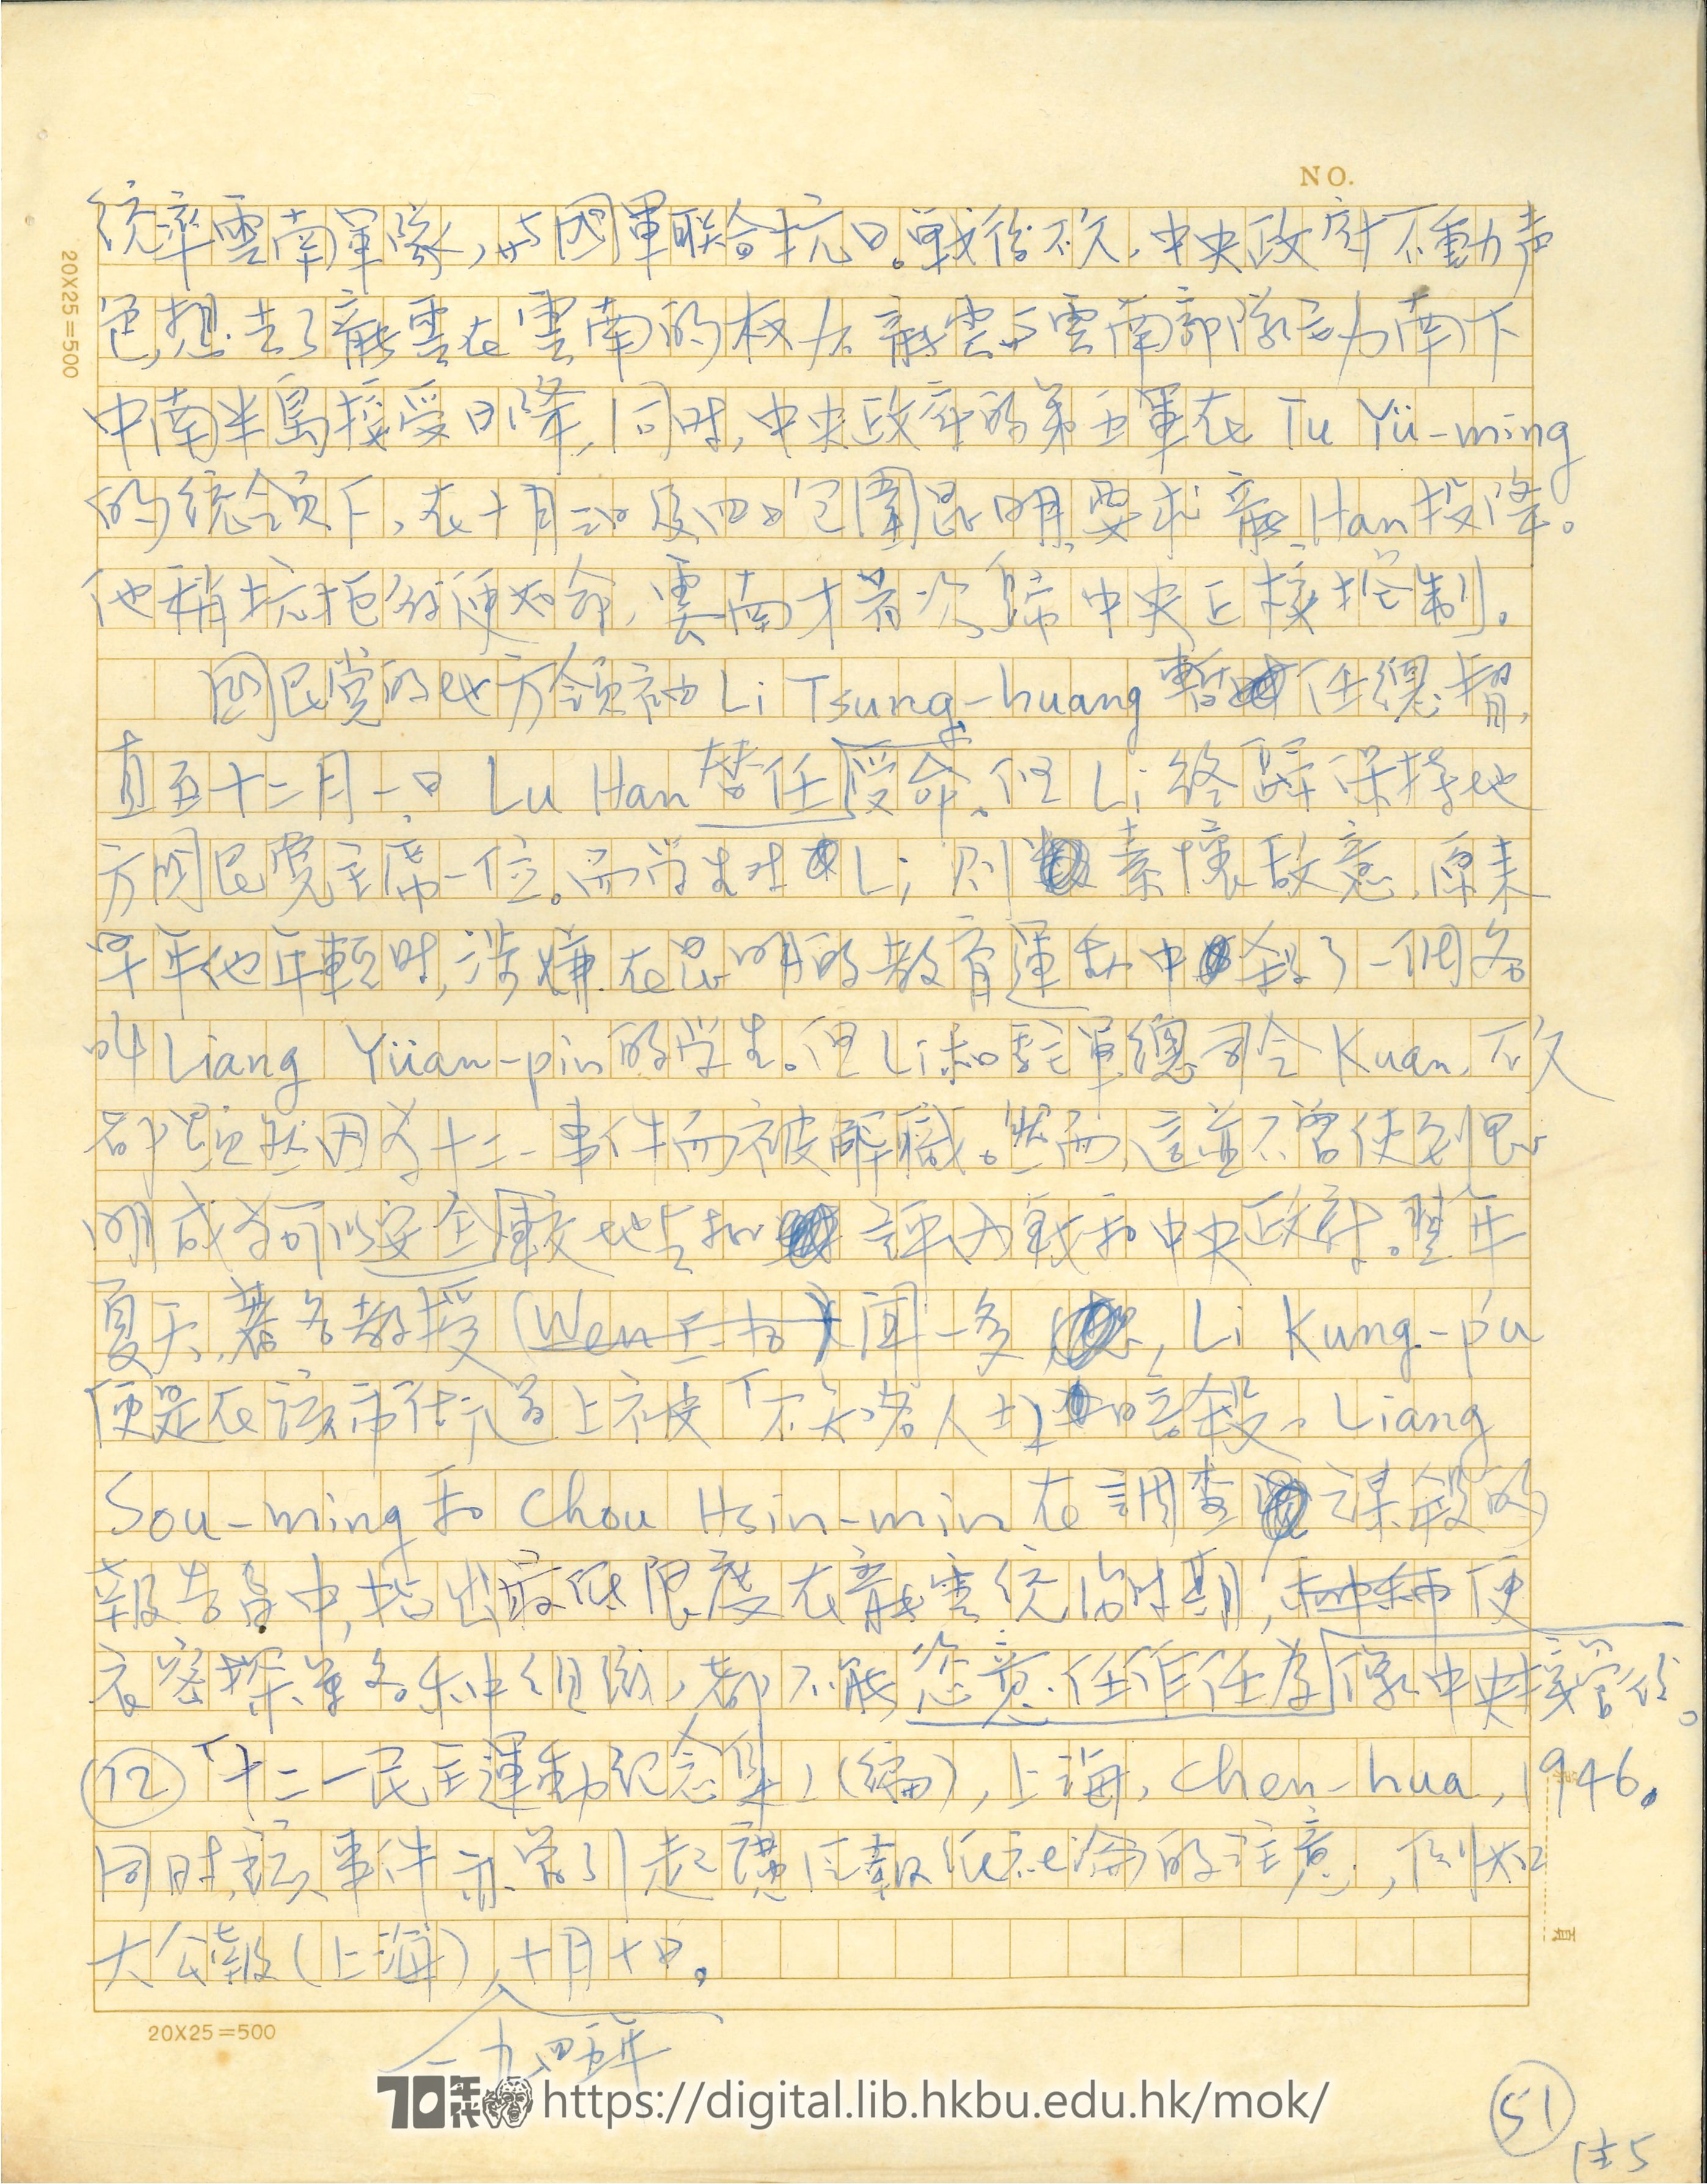 NO.
20X25=500
統率雲南軍隊,与國軍联合抗日。戰後不久,中央政府不動声
色,想去了龍雲在雲南的权力。龍雲与雲南部隊 南下
中南半島接受日降,同时,中央政府的第五軍在 Tu Yü-ming
的統領下,在十月三日及四日包圍昆明,要求龍 Han 投降。
他稍抗拒 便 命,雲南才首次歸中央直接控制。
國民党的地方領袖 Li Tsung-huang 暫任總督,
直至十二月一日 Lu Han 替任受命。但 Li 終 保持地
方國民党主席一位。而学生对 Li,則素懷敌意,原来
早年他年輕时,涉嫌在昆明的教育運動中殺了一個名
叫 Liang Yüan-pin 的学生。但 Li 和駐軍總司令 Kuan,不久
都 然因为十二一事件而被解職。然而,這並不曾使到昆
明成为可以安全 地 評內戰和中央政府。翌年
夏天,著名教授 (Wen 一多) 聞一多, Li Kung-p'u
便是在該市街道上被「不知名人士」暗殺。Liang
Sou-ming 和 Chou Hsin-min 在調查謀殺的
報告書中,指出最低限度在龍雲統治时期,种种便
衣密探等各种組織,都不能恣意任作任为像中央接管後。
⑫「十二一民主運動纪念集」(編),上海,Chen-hua,1946。
同时,該事件亦曾引起 報纸 論的注意,例如
大公報(上海),一九四五年十月十日。
20X25=500
70年代 https://digital.lib.hkbu.edu.hk/mok/
51
注5